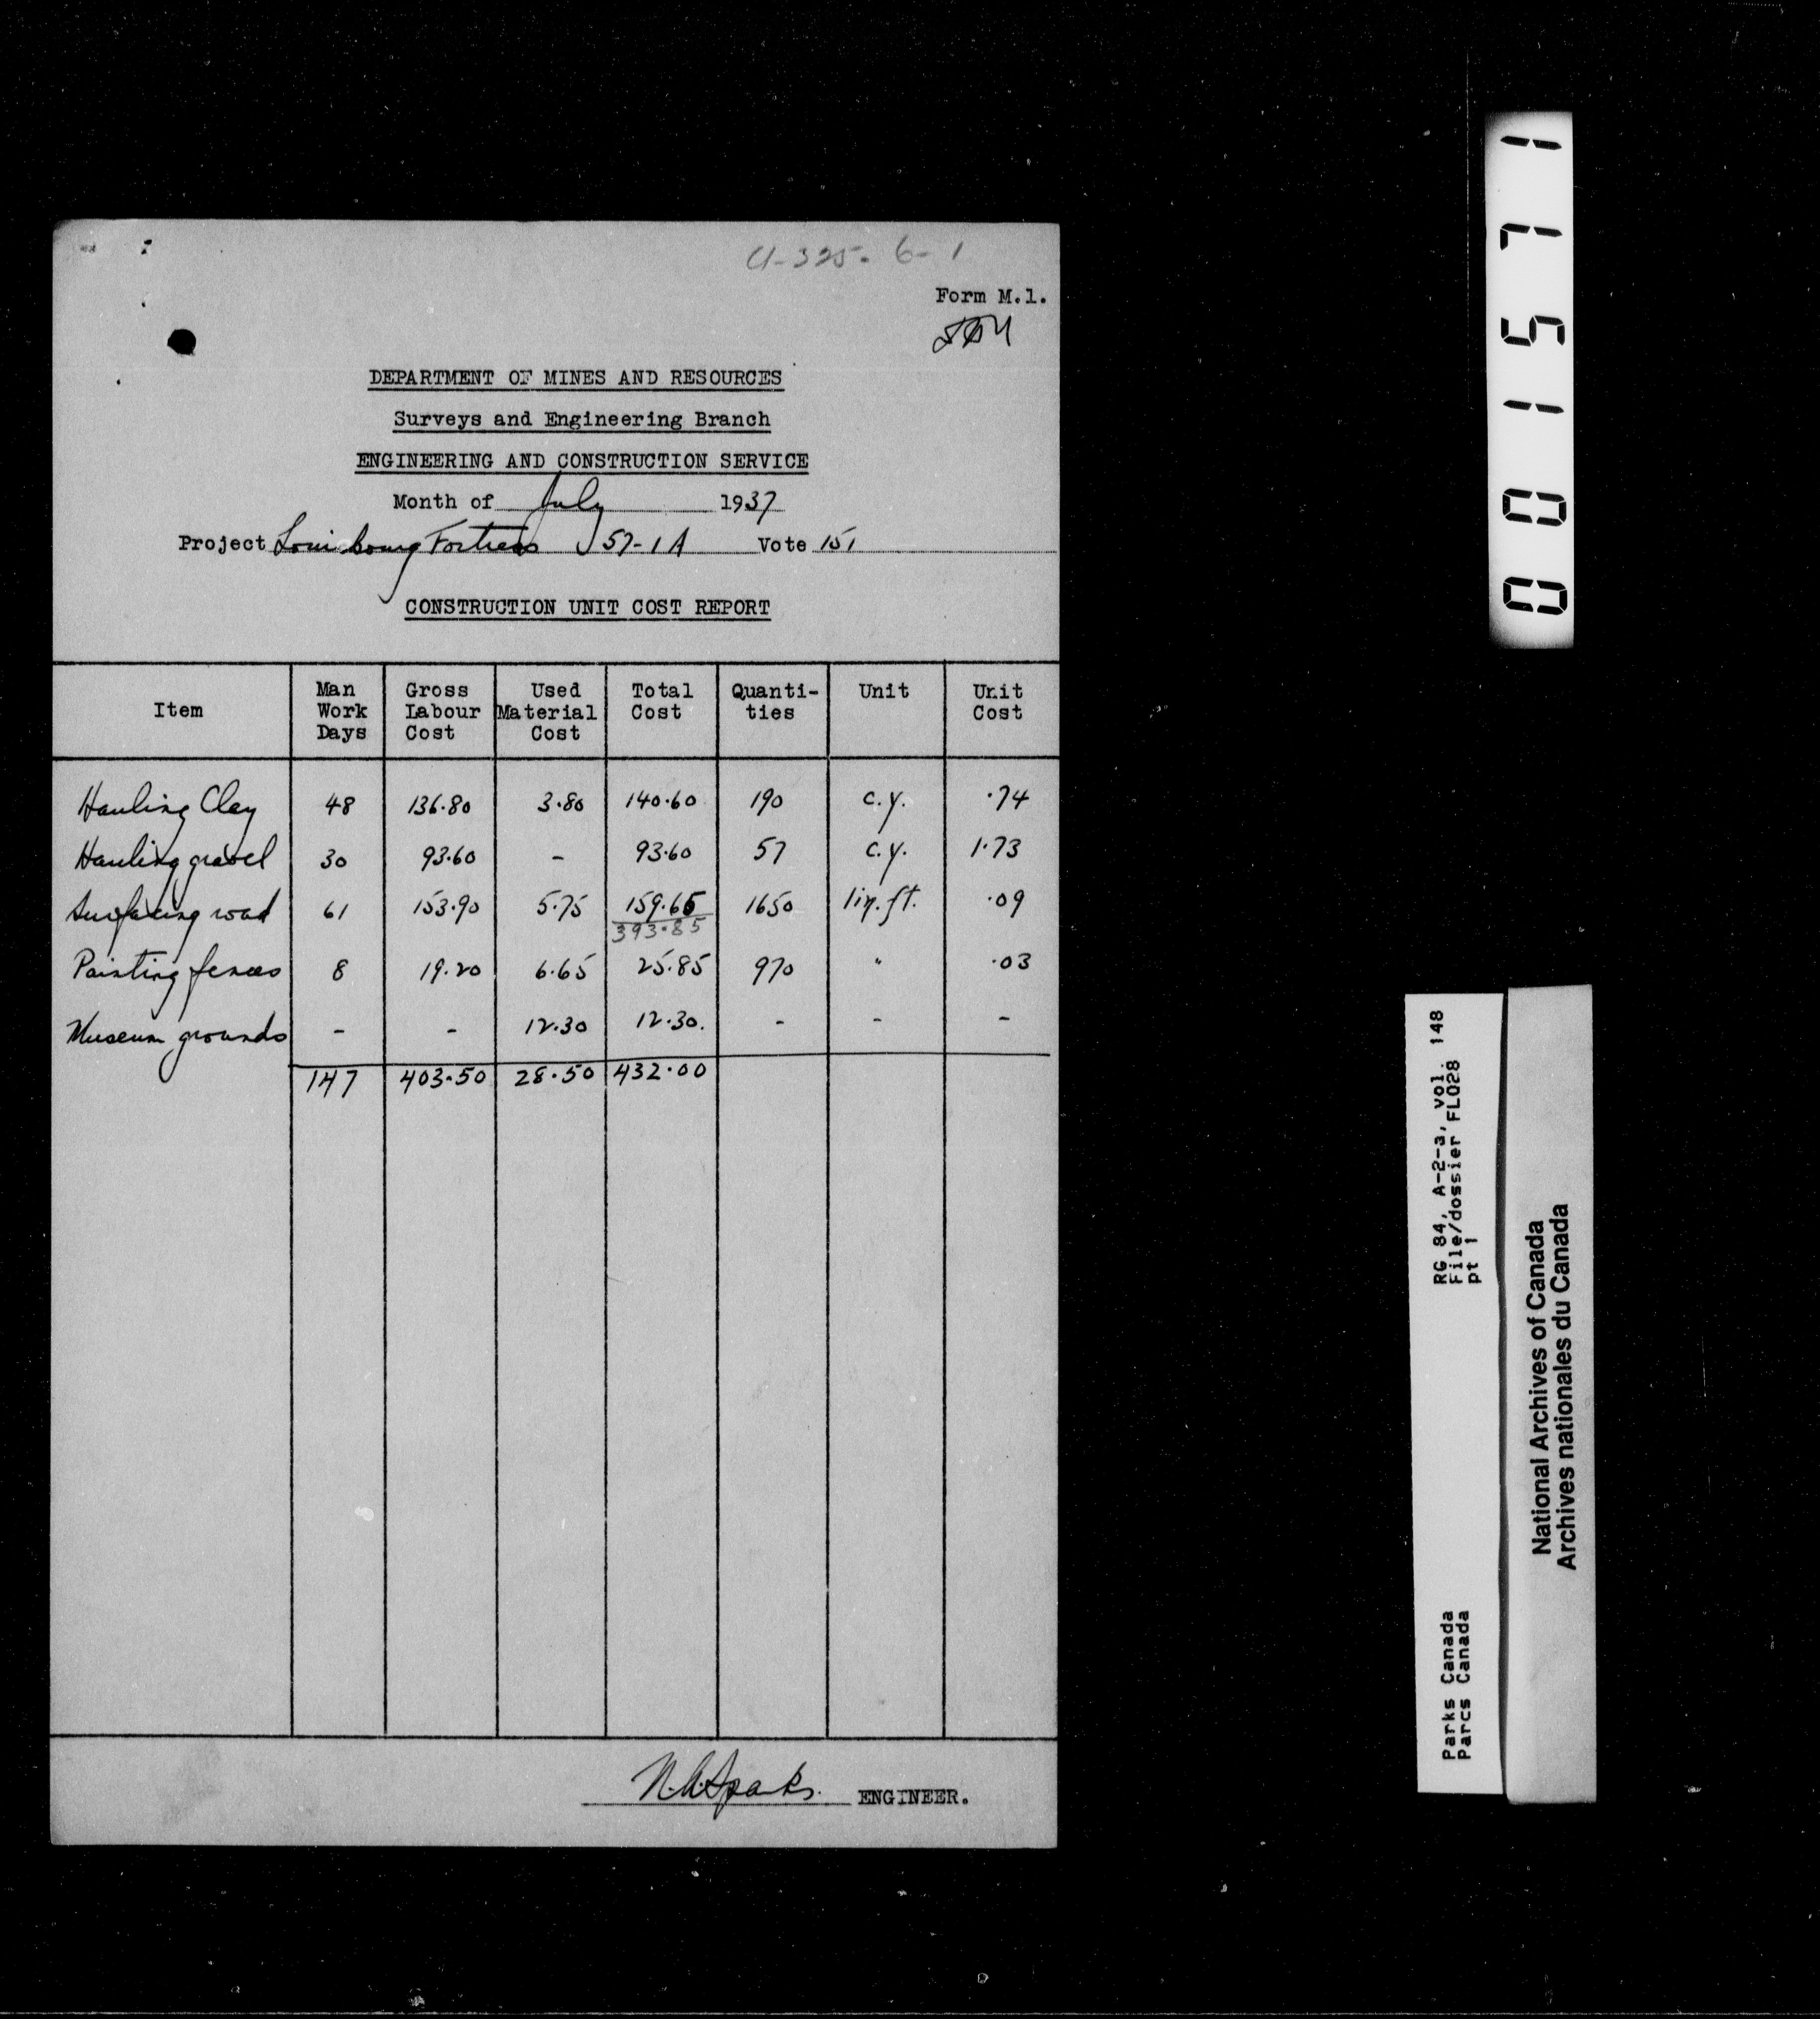 U-325-6-1
Form M.1.
DEPARTMENT OF MINES AND RESOURCES
Surveys and Engineering Branch
ENGINEERING AND CONSTRUCTION SERVICE
Month of July 1937
Project Louisbourg Fortress J57-1A Vote 151
CONSTRUCTION UNIT COST REPORT
Item Man Work Days Gross Labour Cost Used Material Cost Total Cost Quanti-ties Unit Unit Cost
Hauling Clay 48 136.80 3.80 140.60 190 c.y. .74
Hauling gravel 30 93.60 - 93.60 57 c.y. 1.73
Surfacing road 61 153.90 5.75 159.65 1650 lin. ft. .09
393.85
Painting fences 8 19.20 6.65 25.85 970 " .03
Museum grounds - - 12.30 12.30. - - -
147 403.50 28.50 432.00
ENGINEER.
001571
RG 84, A-2-a, Vol. 148
File/dossier FLO28
pt 1
Parks Canada
Parcs Canada
National Archives of Canada
Archives nationales du Canada